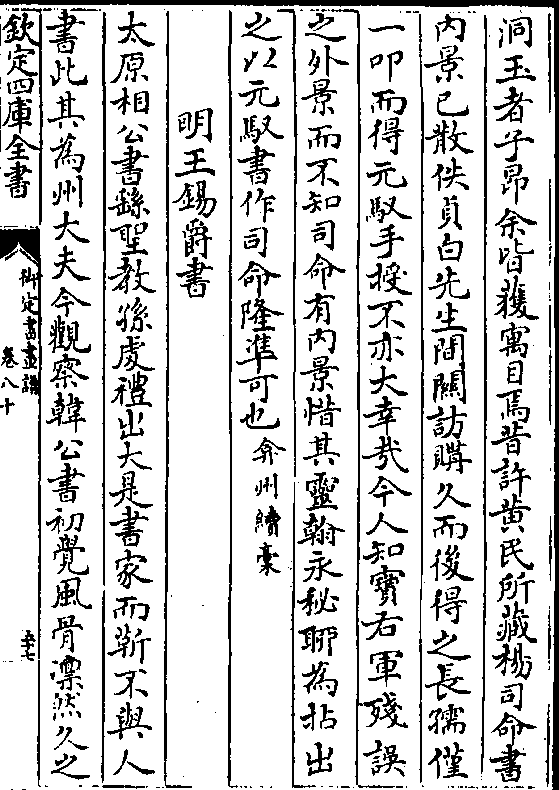 洞玉者子昂余皆獲寓目焉昔許黄民所藏楊司命書
内景已散佚貞白先生間關訪購久而後得之長孺僅
一叩而得元馭手授不亦大幸哉今人知寳右軍殘誤
之外景而不知司命有内景惜其靈翰永秘聊為拈出
之以元馭書作司命隆凖可也弇州續稾
明王錫爵書
太原相公書繇聖教孫處禮出大是書家而靳不與人
書此其為州大夫今觀察韓公書初覺風骨凛然久之
欽定四庫全書
御定書畫譜
卷八十
五十七